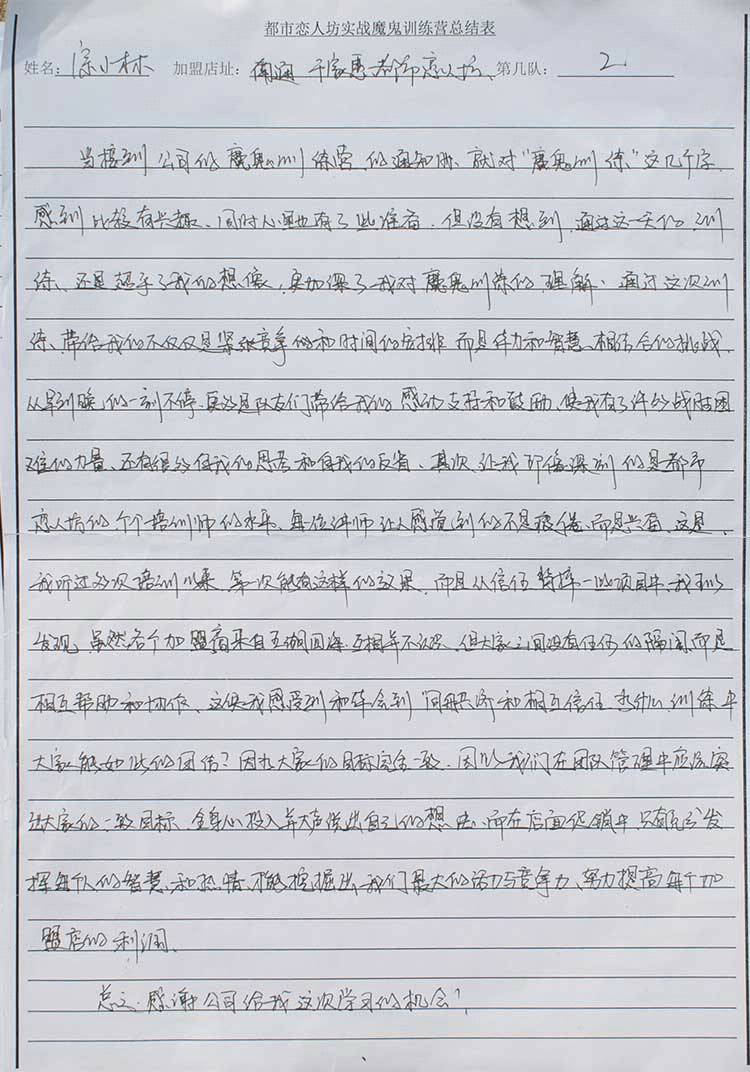 都市恋人坊实战魔鬼训练营总结表
姓名：涂小林 加盟店址：南通 千家惠都市恋人坊、第几队：2
当接到公司的魔鬼训练营的通知时、就对“魔鬼训练”这几个字
感到比较有兴趣、同时心里也有了些准备．但没有想到，通过这一天的训
练、还是超乎了我的想像，更加深了我对魔鬼训练的理解．通过这次训
练、带给我们不仅仅是紧张竞争的和时间的安排 而是体力和智慧、相结合的挑战．
从早到晚的一刻不停．更多是队友们带给我的感动支持和鼓励、使我有了许多战胜困
难的力量、还有很多自我的思考和自我的反省．其次让我印像深刻的是都市
恋人坊的个个培训师的水平、每位讲师让人感觉到的不是疲倦、而是兴奋、这是、
我听过多次培训以来 第一次能有这样的效果．而且从信任 一些项目中、我
发现 虽然各个加盟商来自五湖四海 互相并不认识．但大家之间没有任何的隔阂而是
相互帮助和协作、这使我感受到和体会到“同舟共济和相互信任 为什么训练中
大家能如此的团结？因为大家的目标完全一致．因此我们在团队管理中应该突
出大家的一致目标、全身心投入并大声说出自己的想法．而在店面促销中 只有充分发
挥每个人的智慧、和热情、才能挖掘出我们最大的活力与竞争力、努力提高每个加
盟店的利润、
总之．感谢公司给我这次学习的机会！